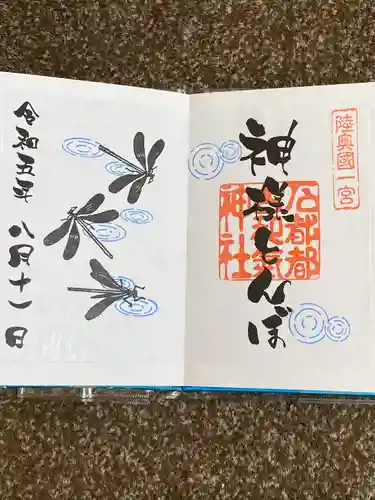 陸奥國一宮
神様とんぼ
石都都古和気神社
令和五年
八月十一日